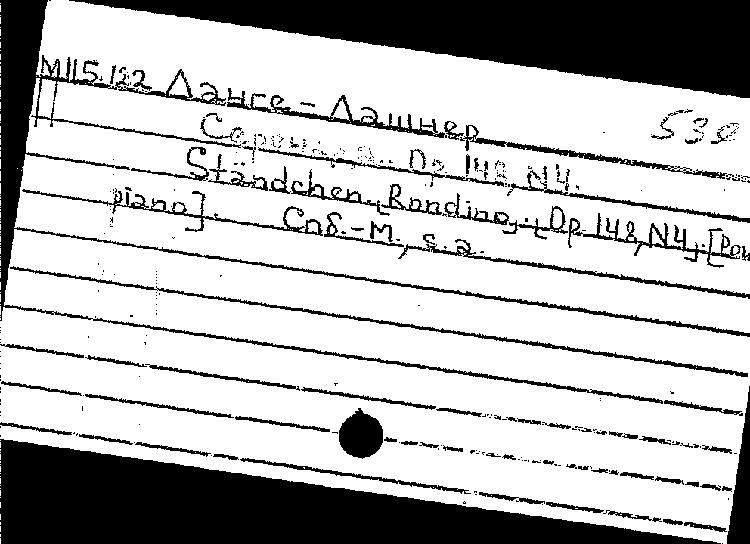 М115.122 Ланге-Лашнер 532
Серенада. Op 148, N4.
Ständchen. [Rondino]. [Op. 148, N4]. [Pour
piano]. Спб.-М., s.a.